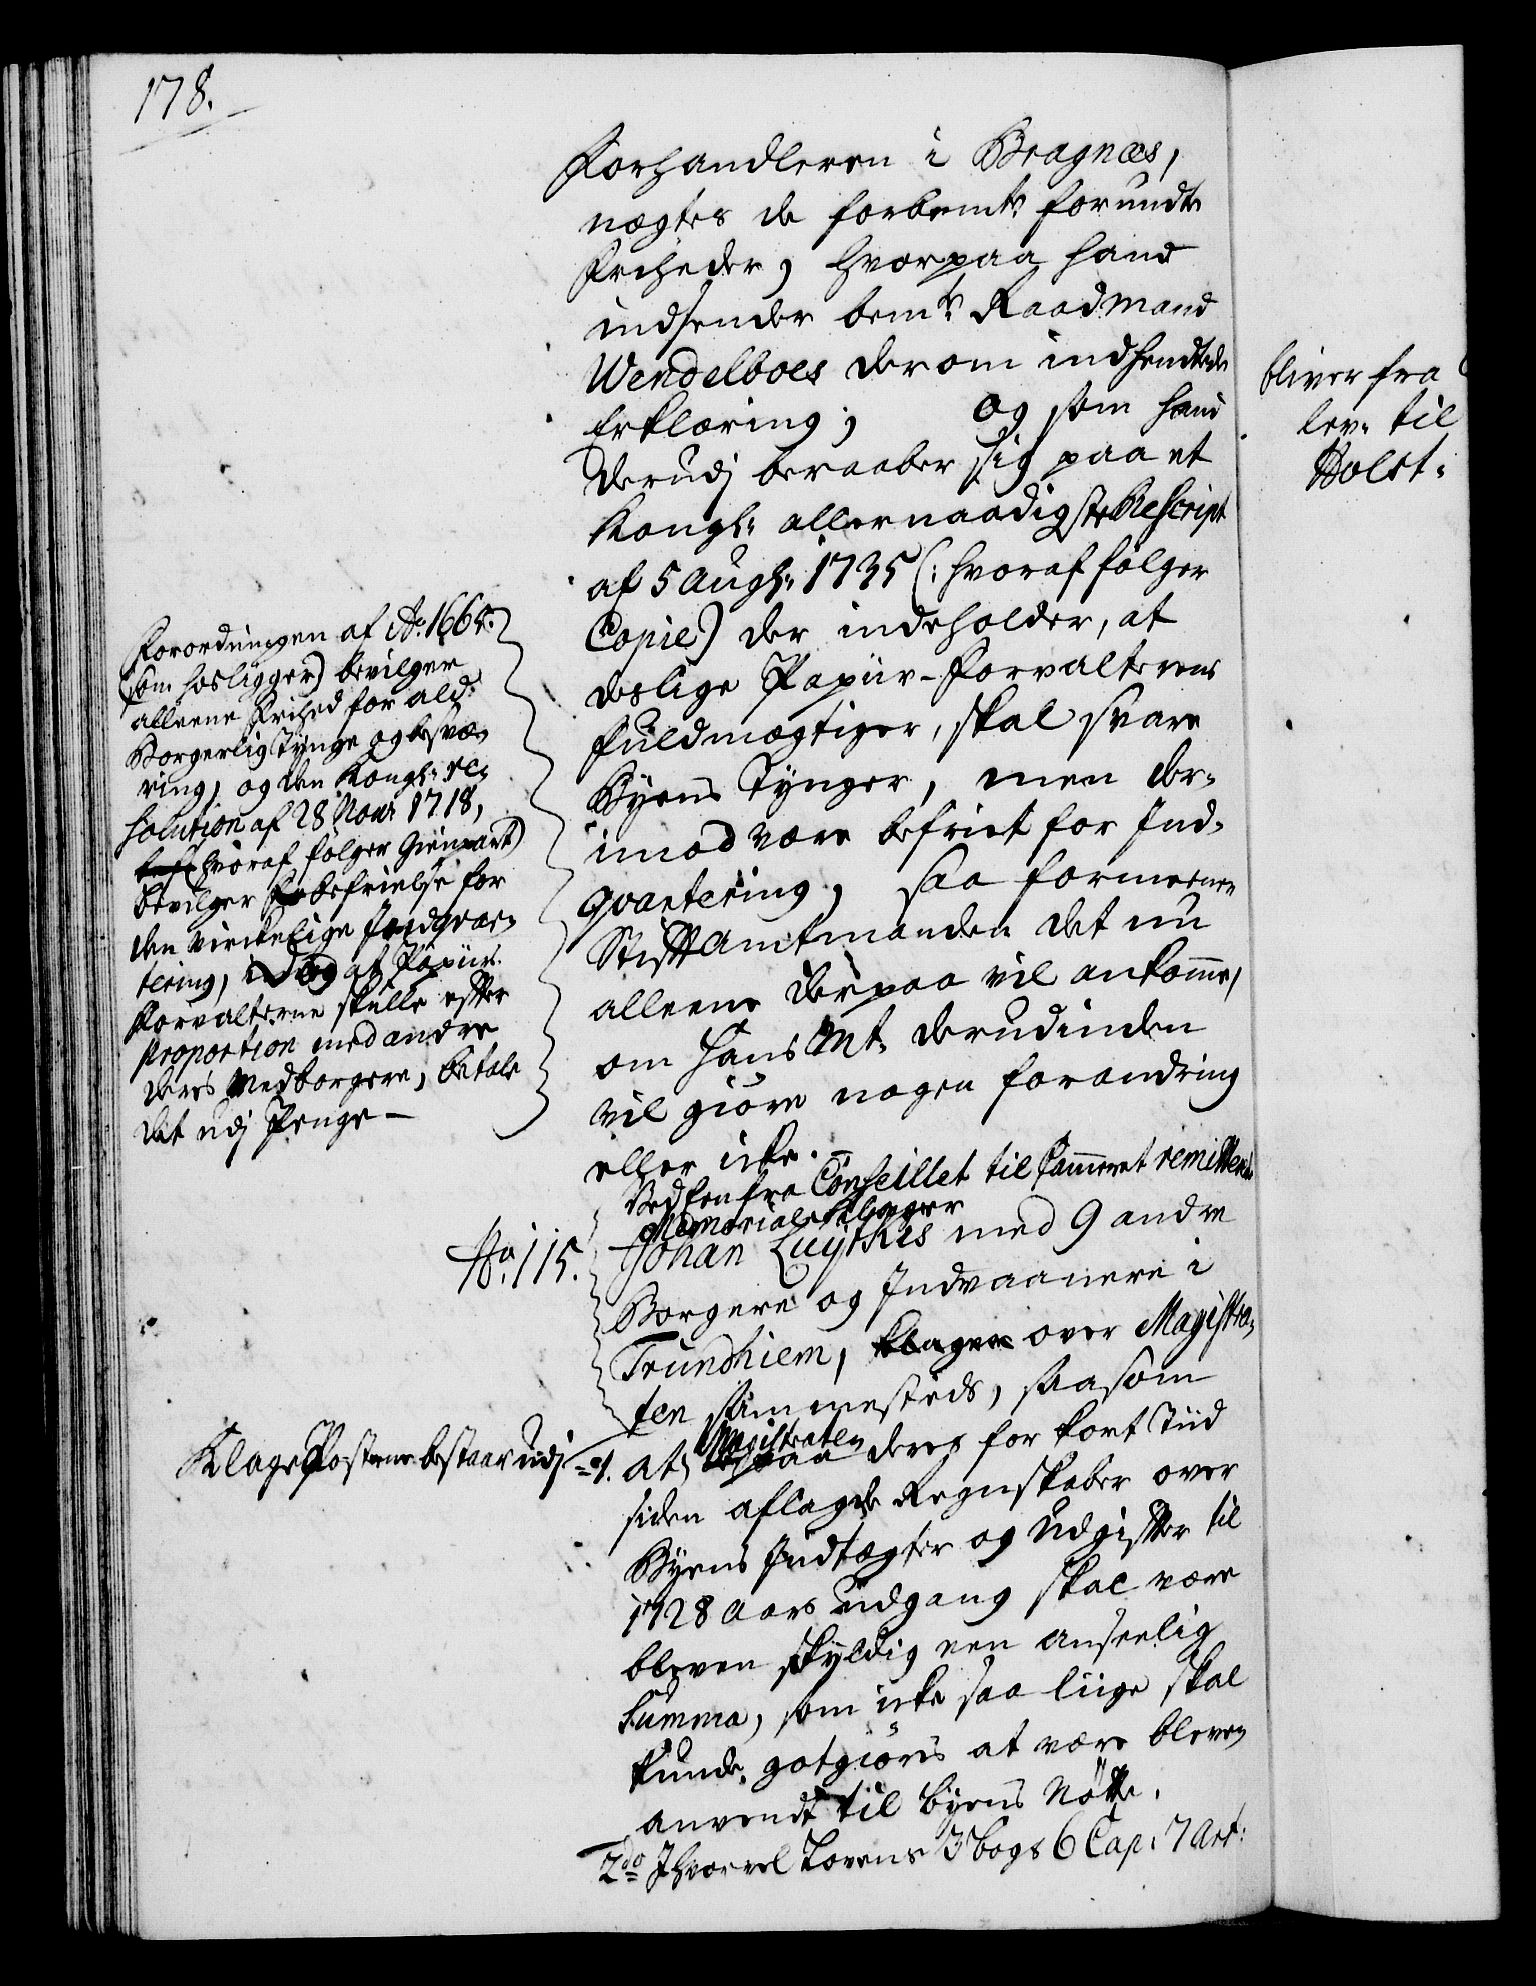 178.
Forhandleren i Bragnæs,
nægtes de forbemte forundte
Friheder, hvorpaa hand
indsender bemte Raadmand
Wendelboes derom indhendtede
Erklæring; og som hand
derudj beraaber sig paa et
Kongl: allernaadigste Rescript
af 5 Augs: 1735 (: hvoraf følger
Copie) der indeholder, at
deslige Papiir-Forvalterens
fuldmægtiger, skal svare
Byens Tynger, men der-
imod være befriet for Ind-
qvartering, saa formeener
Stiftamtmanden det nu
alleene derpaa vil ankomme,
om Hans Mt. derudinden
vil giøre nogen forandring
eller icke. —
Forordningen af Ao. 1665.
(som hosligger) bevilger
alleene Frihed for ald
Borgerlig Tynge og besvæ-
ring, og den Kongl: re-
solution af 28 Novr 1718,
hvoraf følger Gienpart)
bevilger befrielse for
den virckelige Indqvar-
tering, dog at Papiir-
Forvalterne skulle efter
proportion med andre
deres Medborgere, betale
det udj Penge —
No. 115.
Ved een fra Conseillet til Cammeret remitteret
Memorial klager
Johan Luytkis med 9 andre
Borgere og Indvaanere i
Trundhiem, klager over Magistra-
ten sammesteds, saasom
Klage Posterne bestaar udj
1. at Magistraten paa deres for kort Tiid
siden aflagde Regnskaber over
Byens Indtægter og Udgifter til
1728 Aars udgang skal være
bleven skyldig een anseelig
Summa, som icke saa liige skal
kunde gotgiøris at være bleven
anvendt til byens Nøtte.
2do Ihvorvel Lovens 3 bogs 6 Cap: 7 Art:
bliver fra
lev. til
Holst.